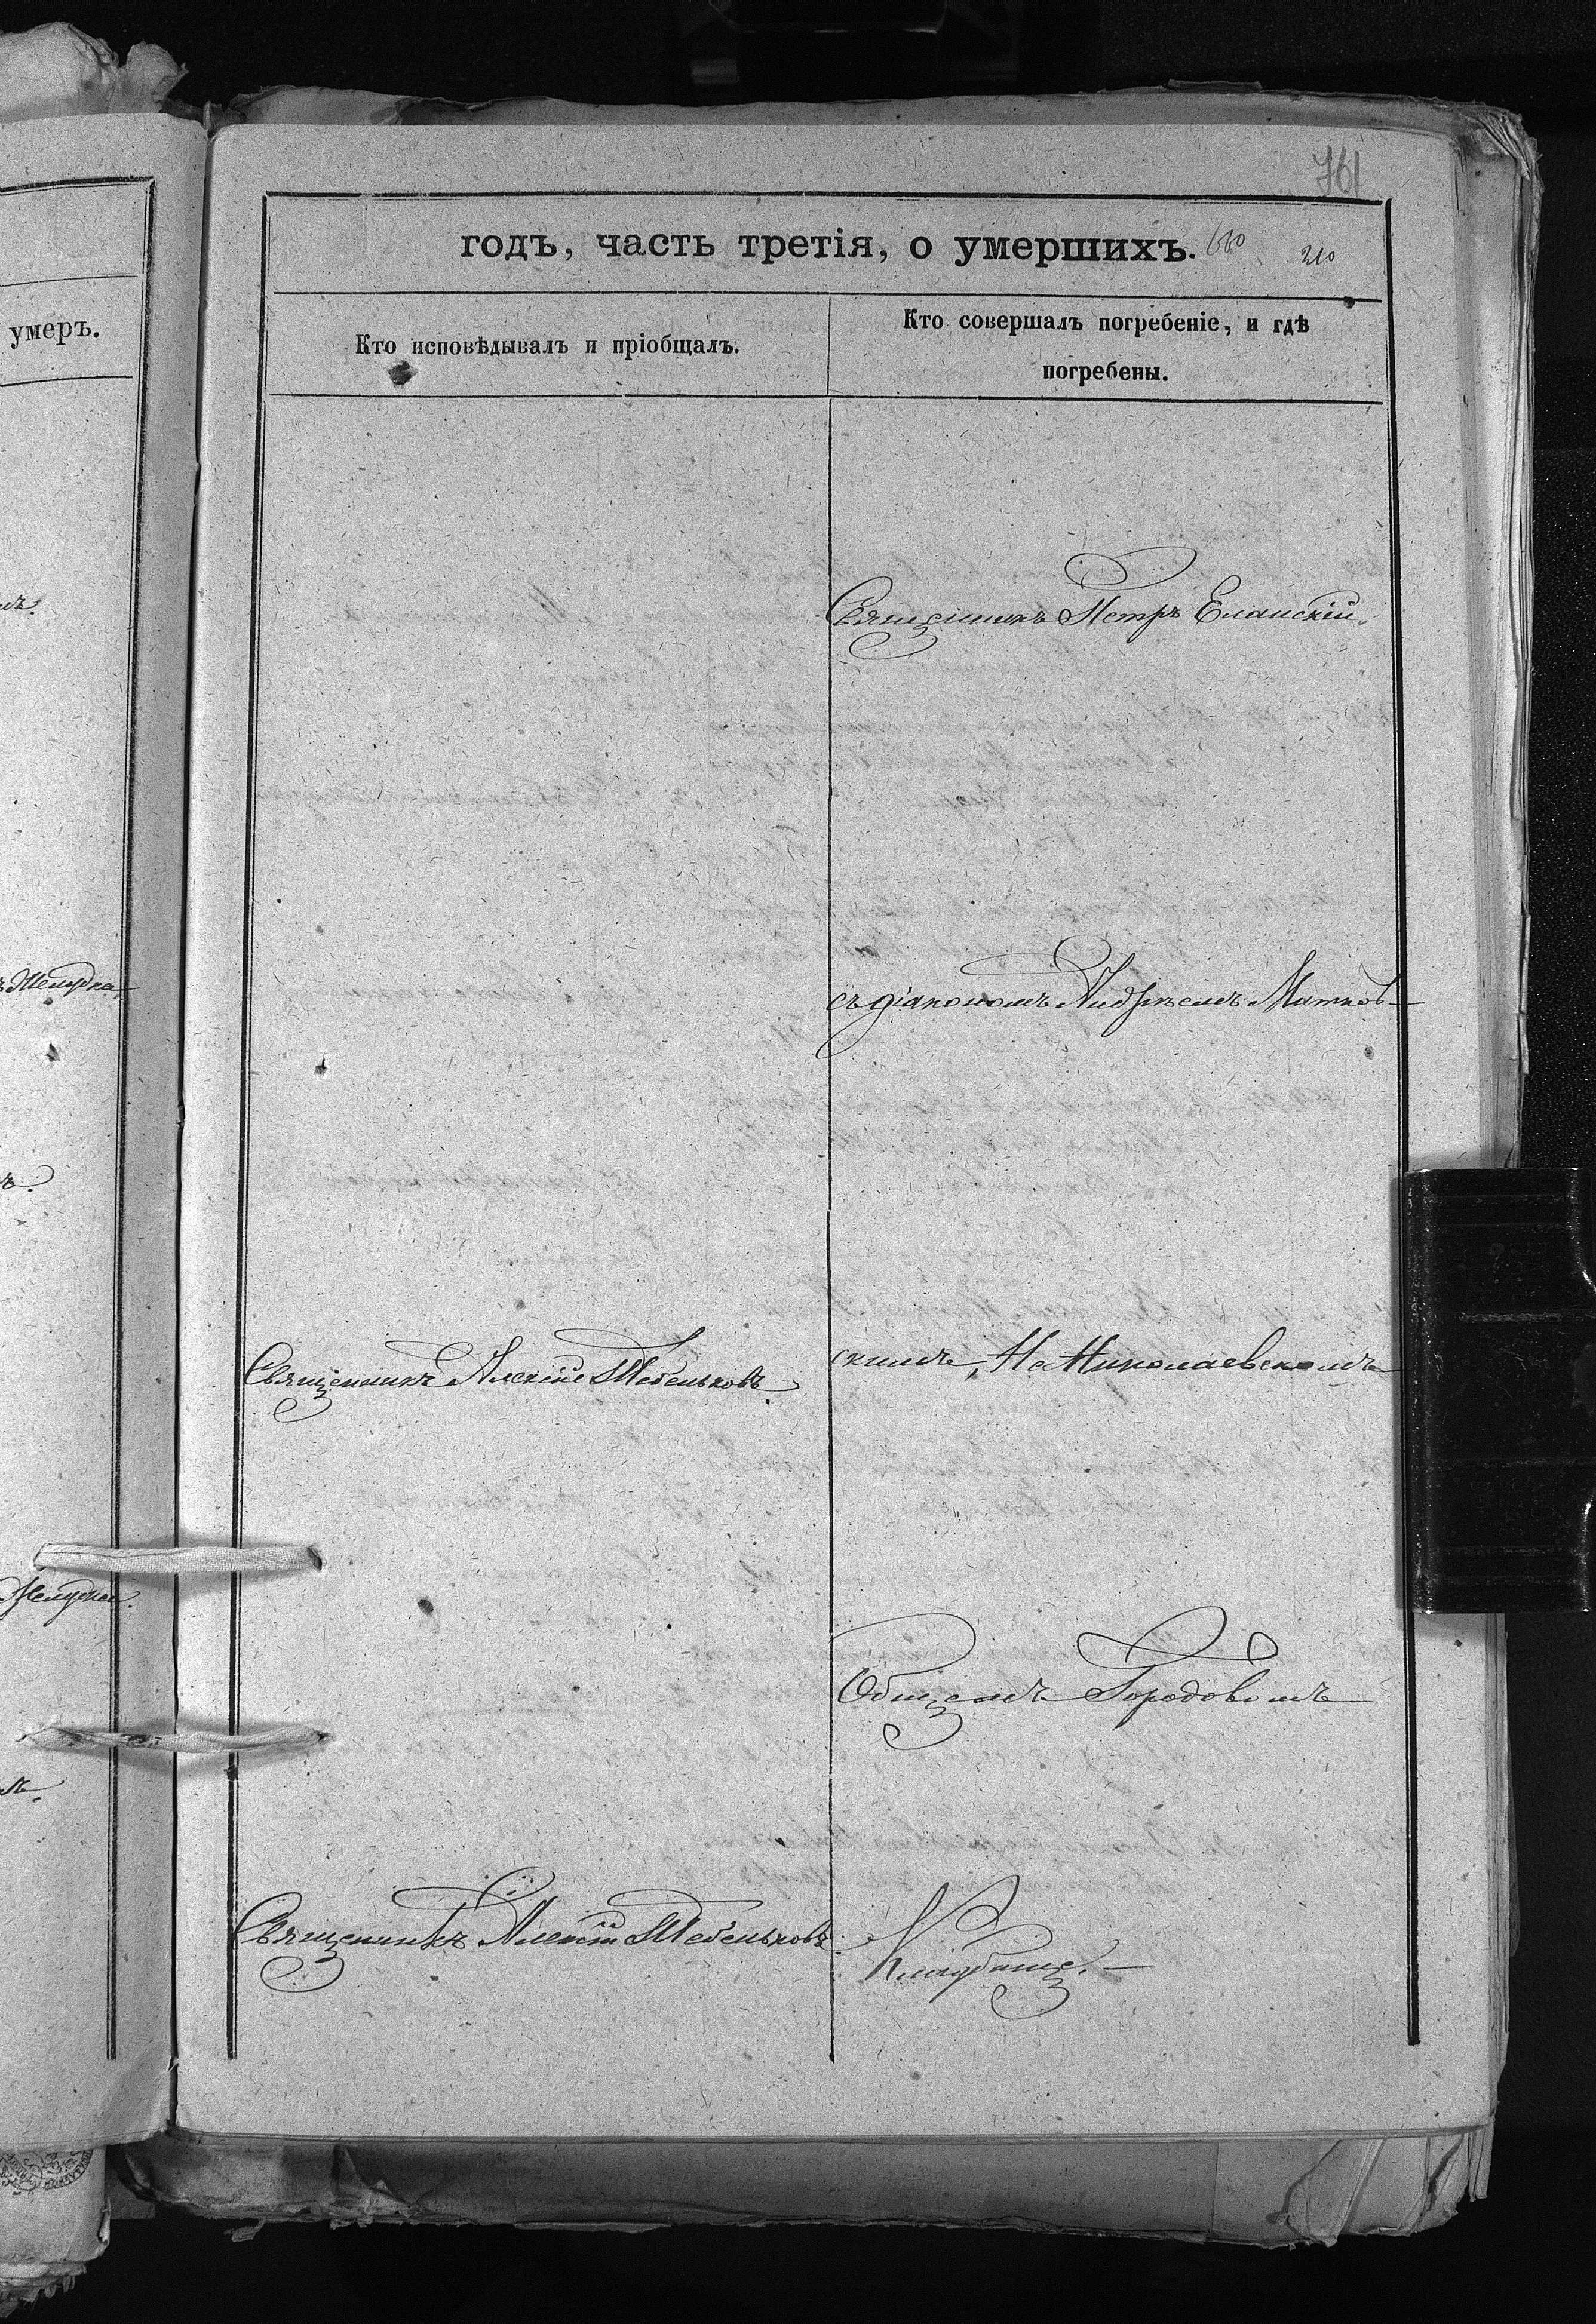 761
годъ, часть третія, о умершихъ. 660 210
умеръ.
Кто исповѣдывалъ и пріобщалъ.
Кто совершалъ погребеніе, и гдѣ
погребены.
Священникъ Петръ Еланскій
съ діакономъ Андреемъ Матков-
Священникъ Алексій Шебеньковъ.
скимъ, На Николаевскомъ
Общемъ Городовомъ
Священникъ Алексій Шебеньковъ.
Кладбище.